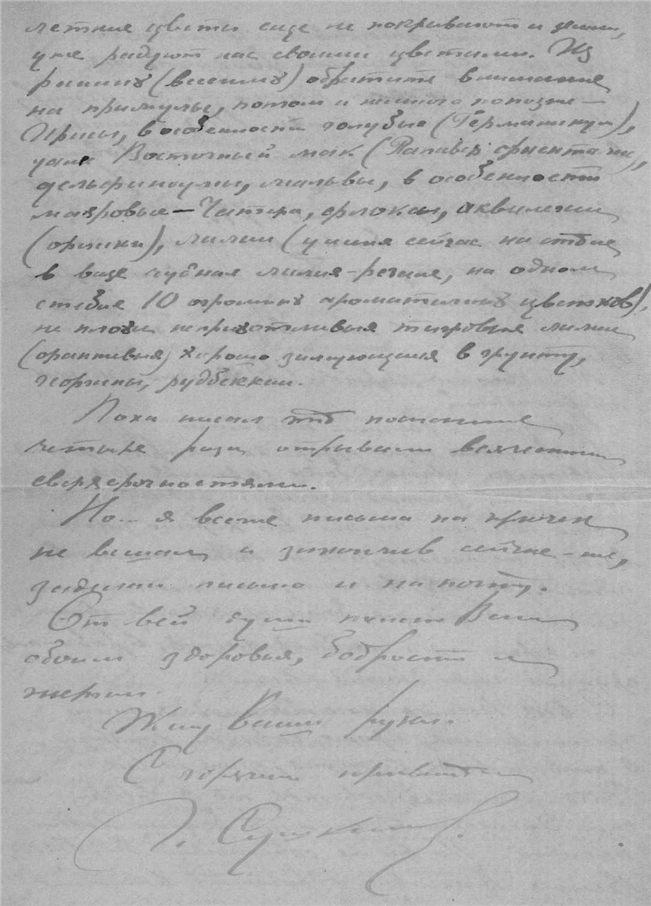 летние цветы еще не покрывают и зимы,
уже радуют нас своими цветами. Из
ранних (весенних) обратите внимание
на примулы, потом и немного попозже —
Ирисы, в особенности голубые (Германикум),
Восточный мак (Папавер ориентале),
дельфиниумы, мальвы, в особенности
махровые — Чатера, флоксы, аквилегии
(орлики), лилии (у меня сейчас на столе
в вазе чудная лилия-регале, на одном
стебле 10 огромных ароматичных цветков),
не плохи неприхотливые тигровые лилии
(оранжевые) хорошо зимующие в грунту,
георгины, рудбекии.
Пока писал это послание
четыре раза отрывали всяческими
сверхсрочностями.
Но... я все же письма на крючек
не вешал и закончив сейчас-же,
письмо и на почту.
От всей души желаю Вам
обоим здоровья, бодрости и
энергии.
Жму Ваши руки.
С горячим приветом